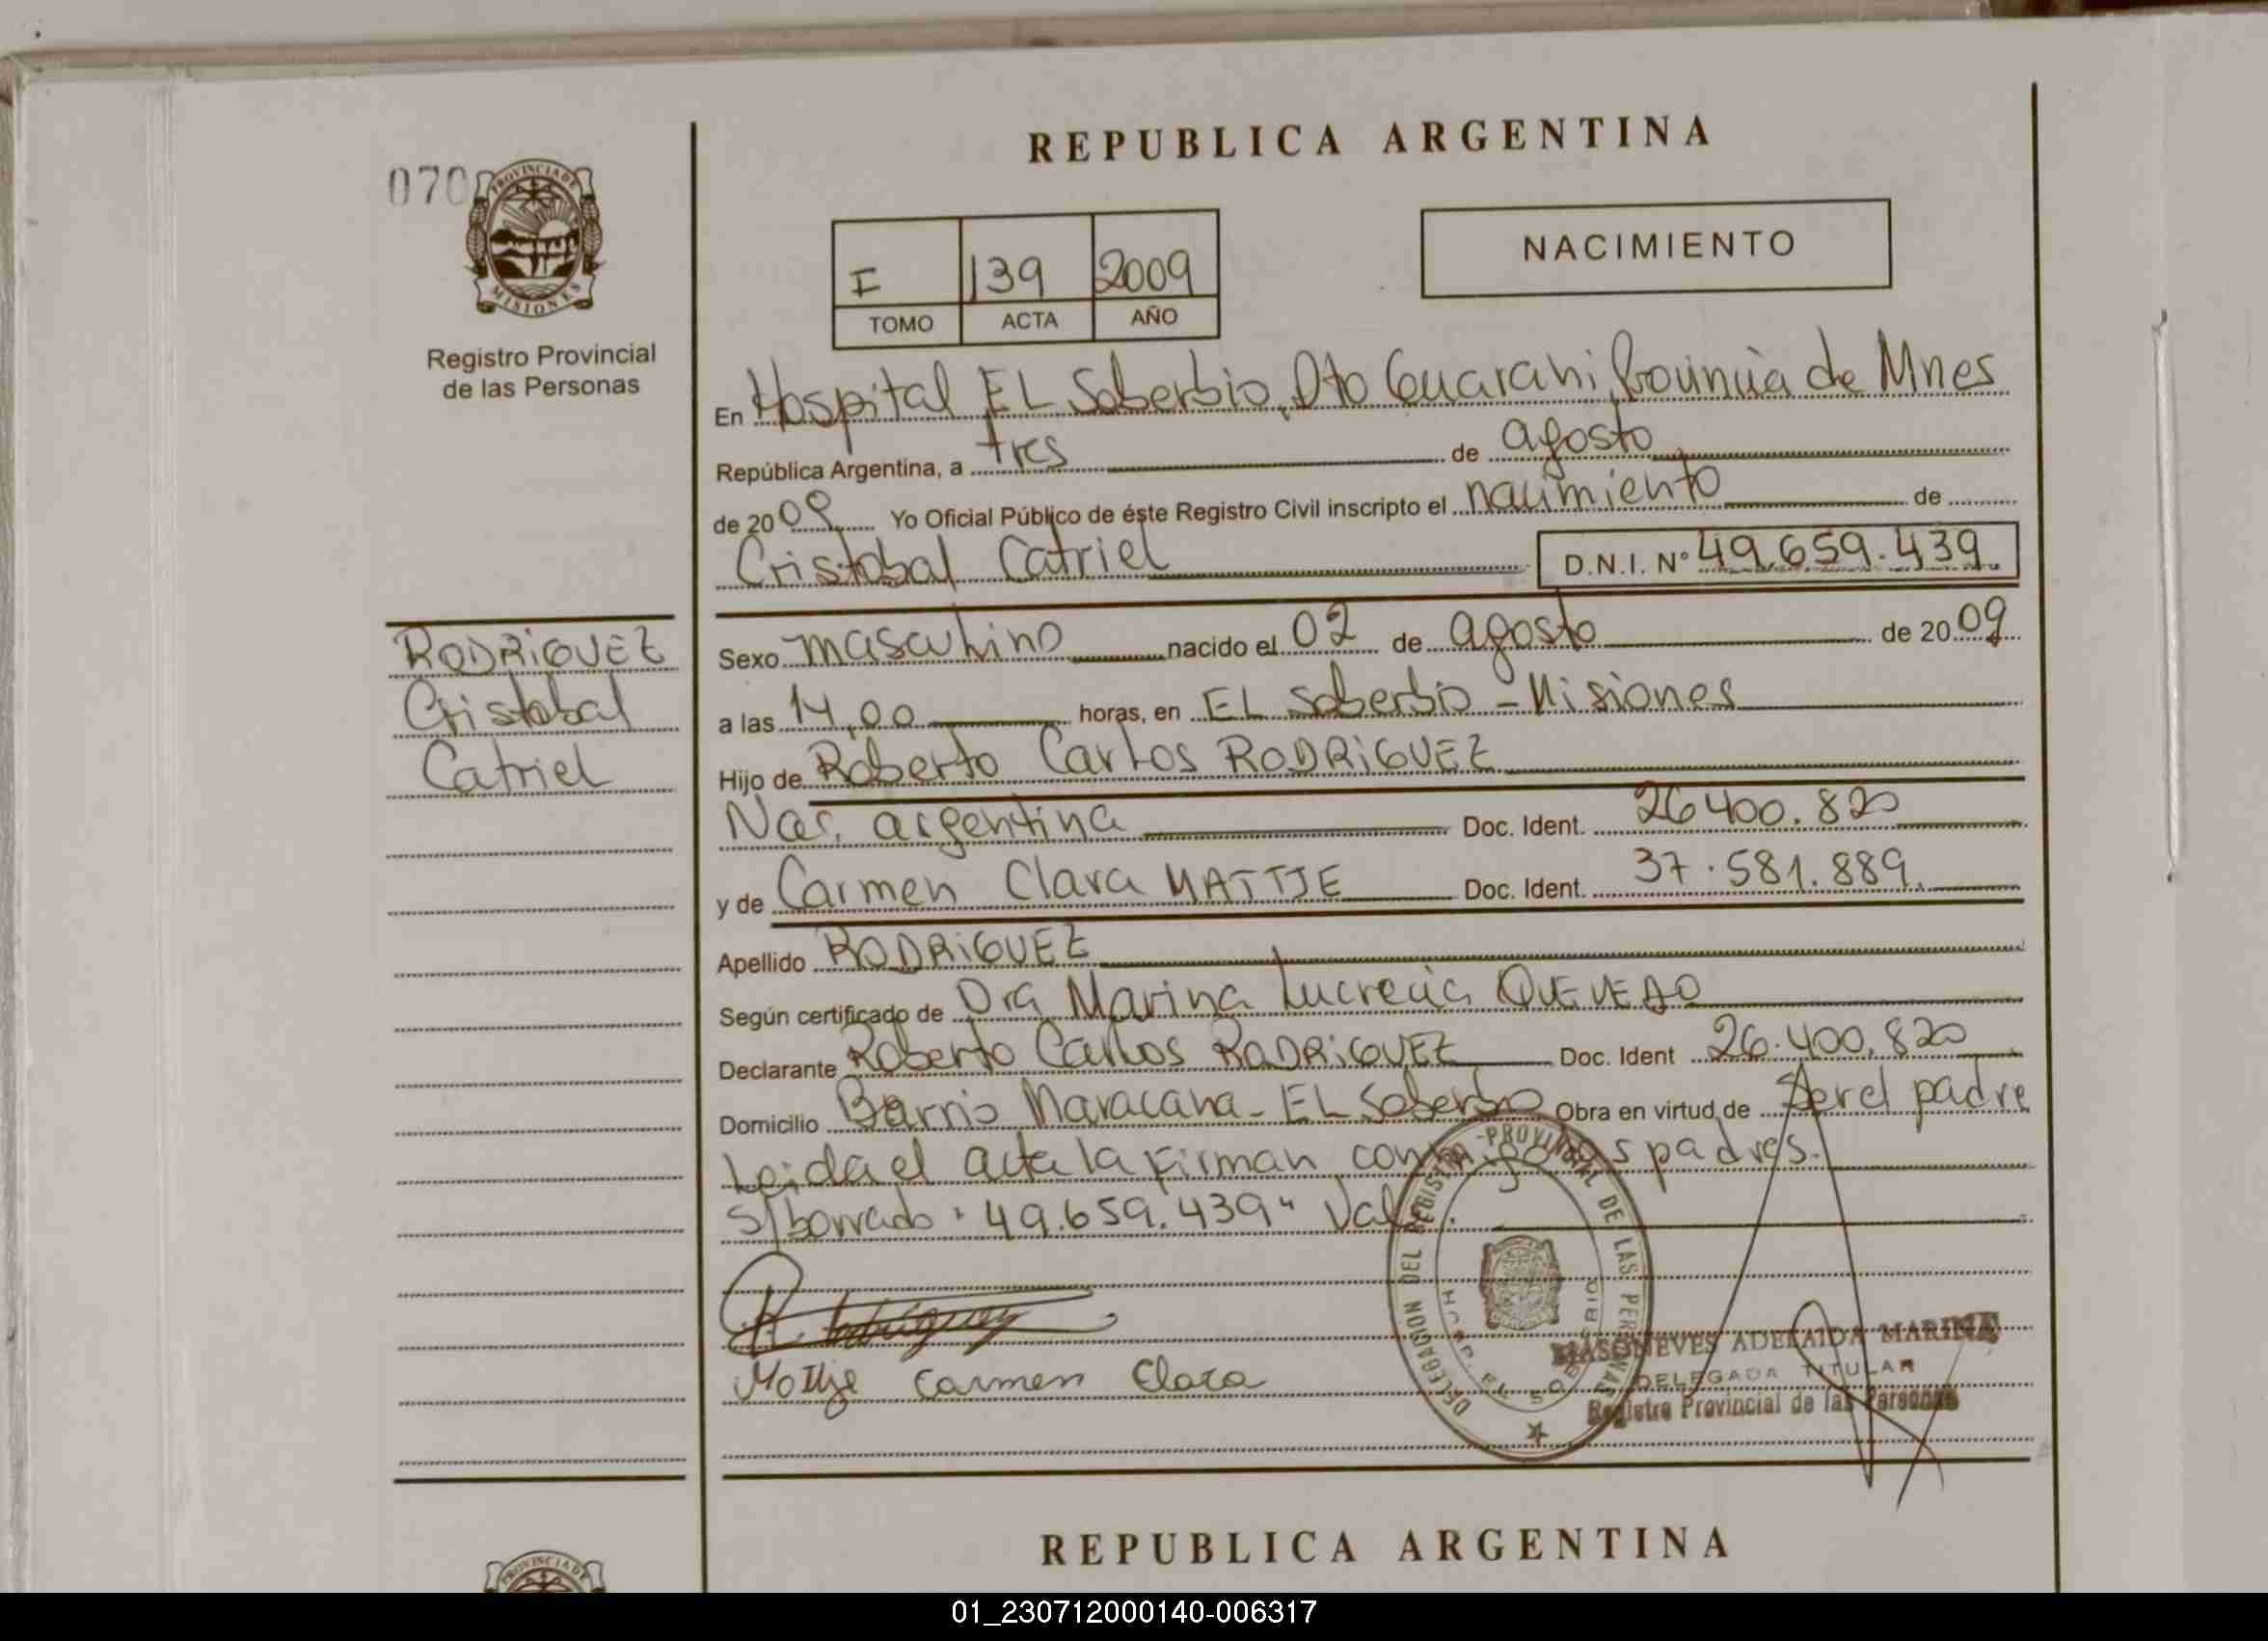 REPUBLICA ARGENTINA
070
PROVINCIA DE
MISIONES
Registro Provincial
de las Personas
I 139 2009
TOMO ACTA AÑO
NACIMIENTO
En Hospital EL Soberbio, Dto Guarani, Provincia de Mnes
República Argentina, a tres de agosto
de 2009 Yo Oficial Público de éste Registro Civil inscripto el nacimiento de
Cristobal Catriel D.N.I. Nº 49.659.439
RODRIGUEZ
Cristobal
Catriel
Sexo masculino nacido el 02 de agosto de 2009
a las 14,00 horas, en EL Soberbio - Misiones
Hijo de Roberto Carlos RODRIGUEZ
Nac. argentina Doc. Ident. 26400.820
y de Carmen Clara MATTJE Doc. Ident. 37.581.889
Apellido RODRIGUEZ
Según certificado de Dra Marina Lucrecia QUEVEDO
Declarante Roberto Carlos RODRIGUEZ Doc. Ident 26.400.820
Domicilio Barrio Maracana - EL Soberbio Obra en virtud de Ser el padre
Leida el acta la firman conmigo los padres.
S/borrado "49.659.439" Vale.
R. Rodriguez
Mattje Carmen Clara
DELEGACION DEL REGISTRO PROVINCIAL DE LAS PERSONAS
EL SOBERBIO
MASONEVES ADELAIDA MARINA
DELEGADA TITULAR
Registro Provincial de las Personas
REPUBLICA ARGENTINA
PROVINCIA DE
01_230712000140-006317